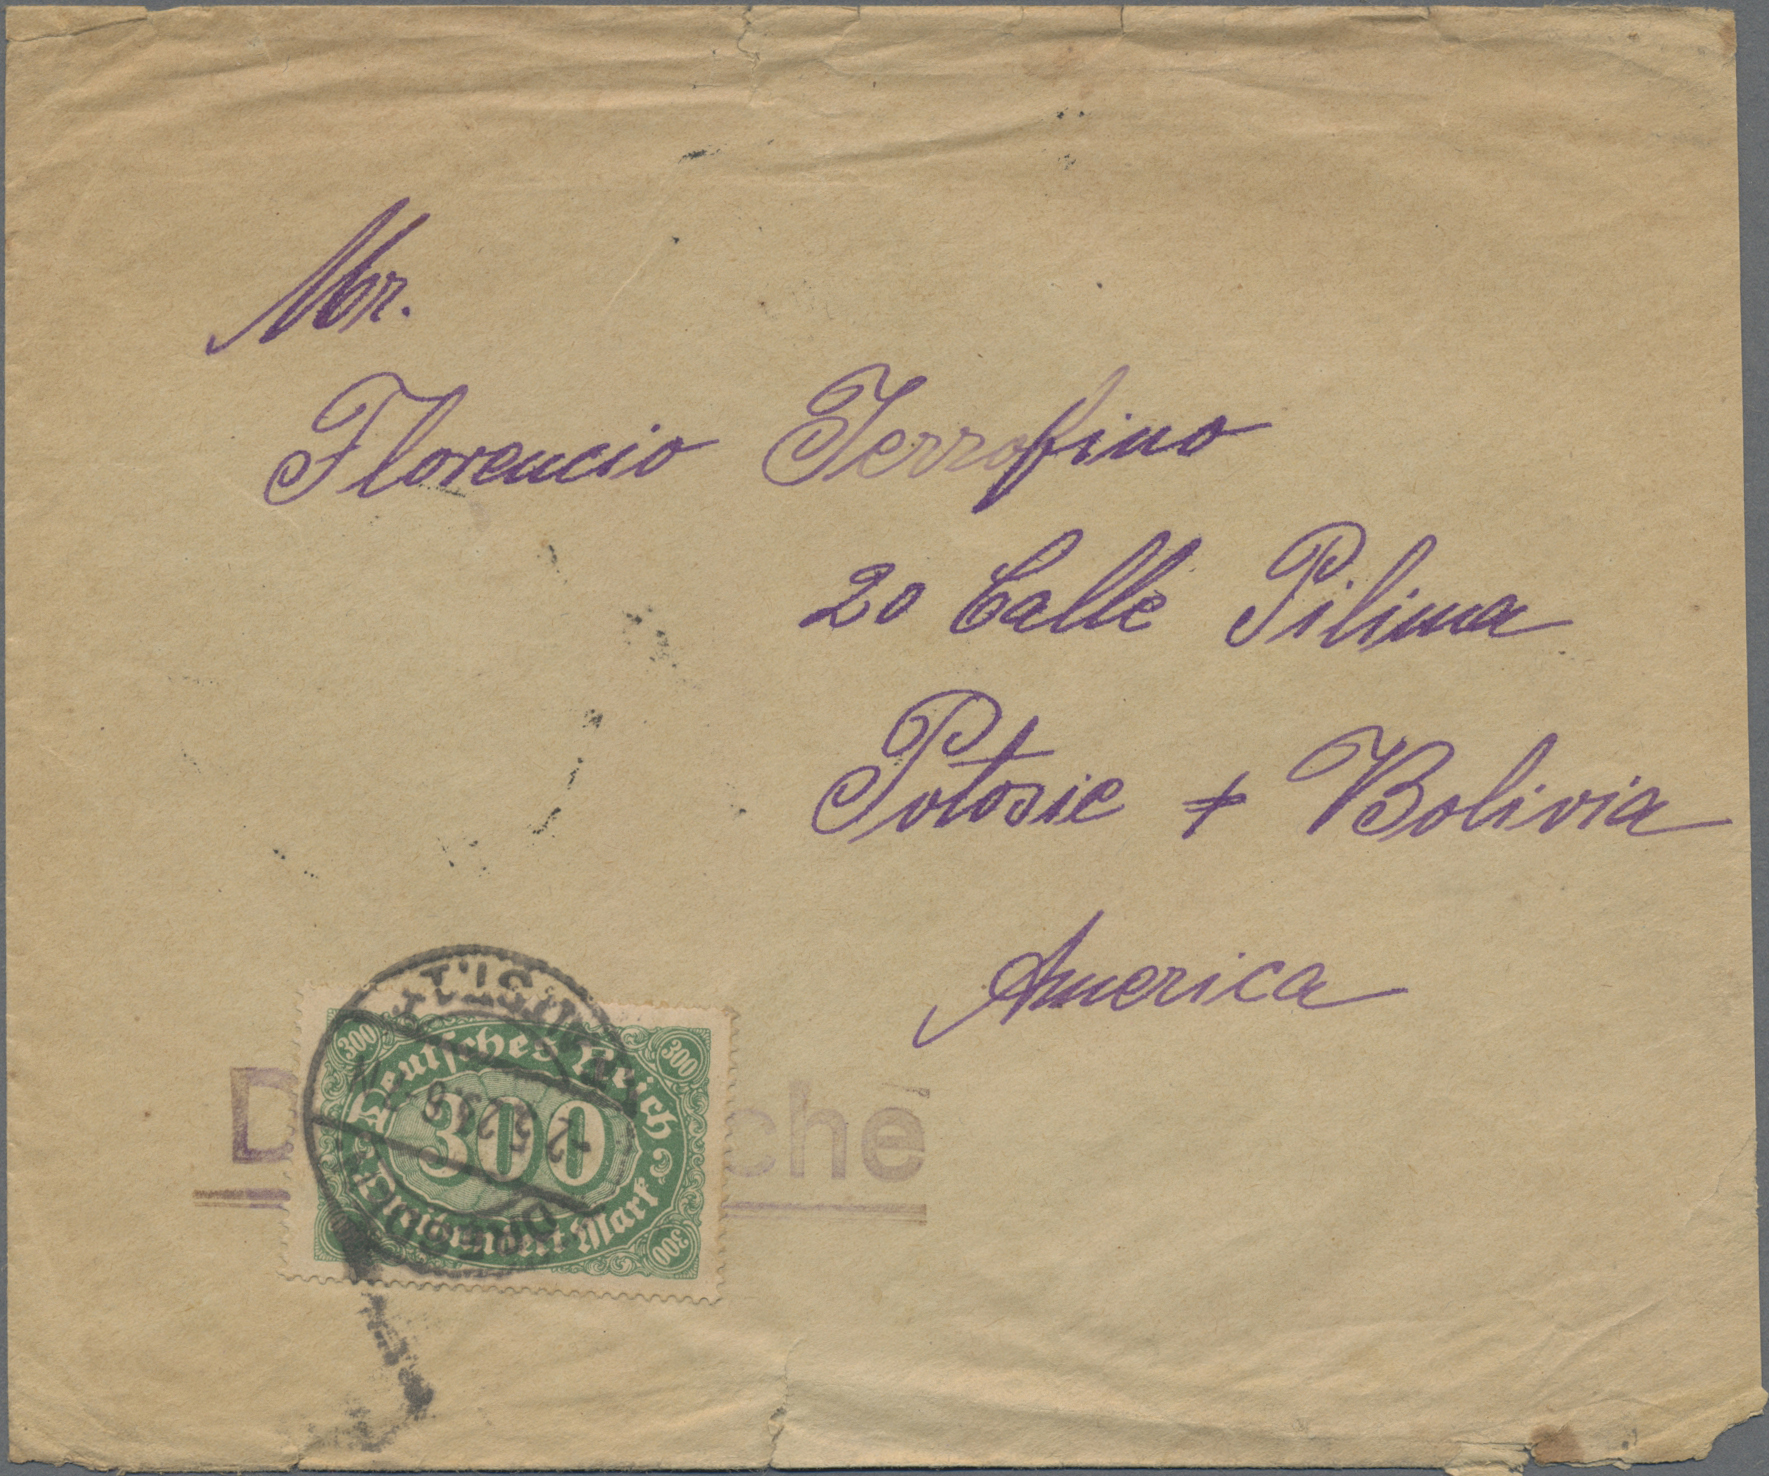 Mr.
Florencio Terrofino
20 Calle Pilima
Potosie + Bolivia
America
300 300
Deutsches Reich
300
Dreihundert Mark
300
DRESDEN
-2 5 23 6-7 N